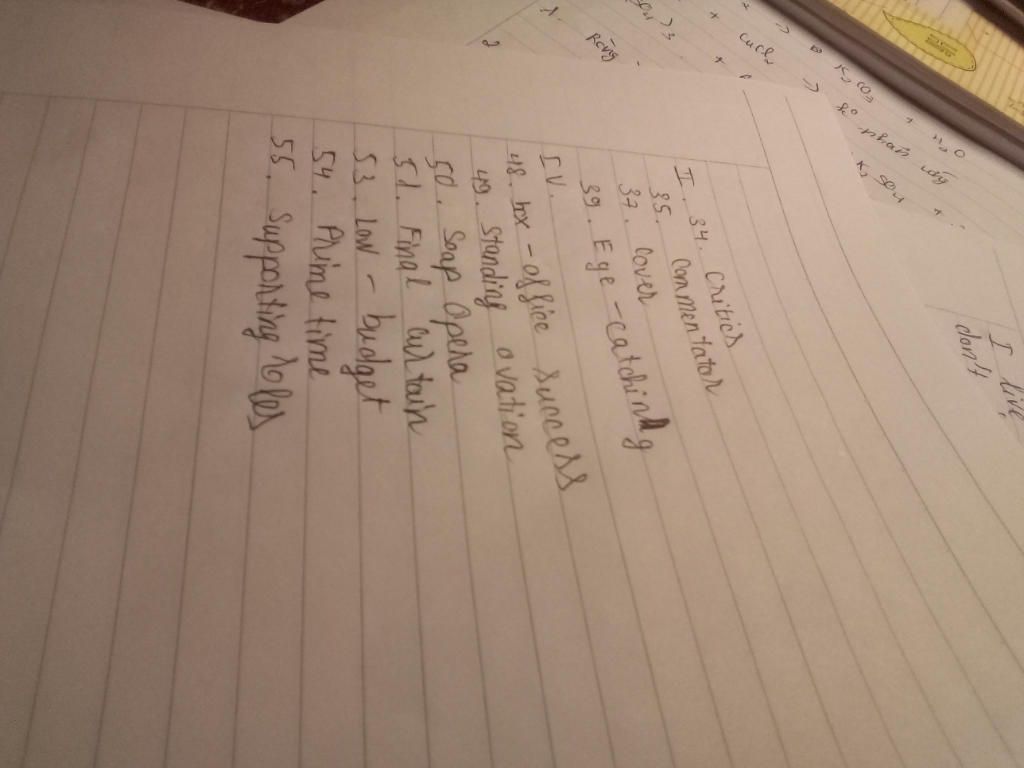 I. 34. critics
35. Commentator
37. Cover
39. Eye-catching
IV.
48. bx-office success
49. Standing ovation
50. Soap Opera
51. Final curtain
53. Low-budget
54. Prime time
55. Supporting roles
I like
don't